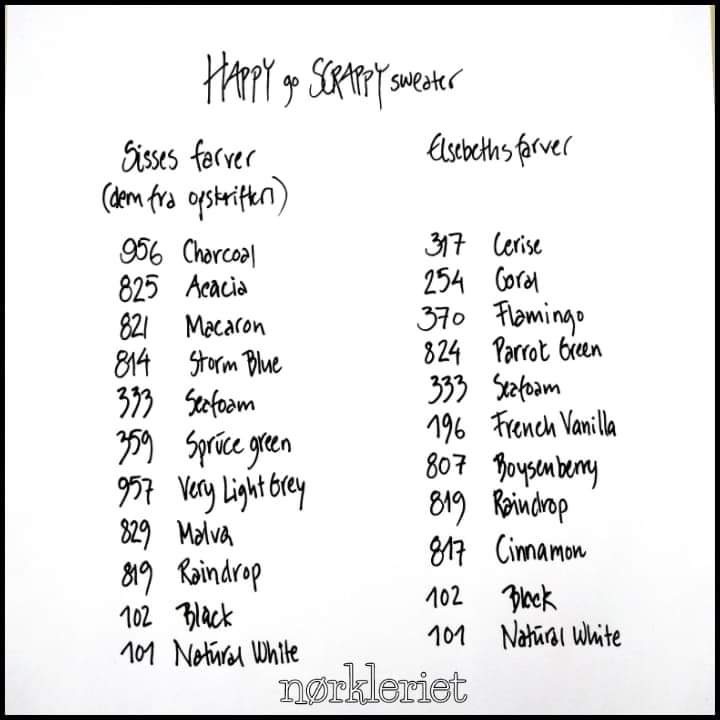 HAPPY go SCRAPPY sweater
Sisses farver
(dem fra opskriften)
956 Charcoal
825 Acacia
821 Macaron
814 Storm Blue
333 Seafoam
359 Spruce green
957 Very Light Grey
829 Malva
819 Raindrop
102 Black
101 Natural White
Elsebeths farver
317 Cerise
254 Coral
370 Flamingo
824 Parrot Green
333 Seafoam
196 French Vanilla
807 Boysenberry
819 Raindrop
817 Cinnamon
102 Black
101 Natural White
nørkleriet